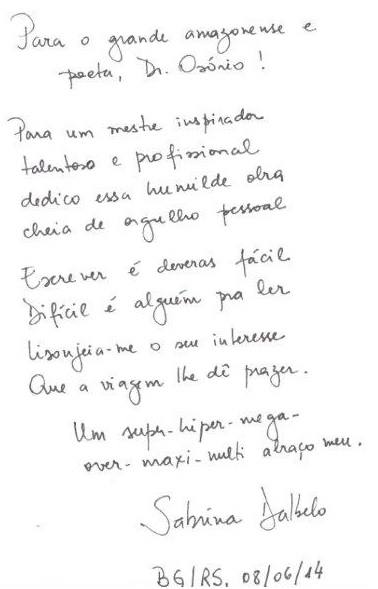 Para o grande amazonense e
poeta, Dr. Osório !
Para um mestre inspirador
talentoso e profissional
dedico essa humilde obra
cheia de orgulho pessoal
Escrever é deveras fácil
Difícil é alguém pra ler
Lisonjeia-me o seu interesse
Que a viagem lhe dê prazer.
Um super-hiper-mega-
over-maxi-multi abraço meu.
Sabrina Dalbelo
BG/RS, 08/06/14